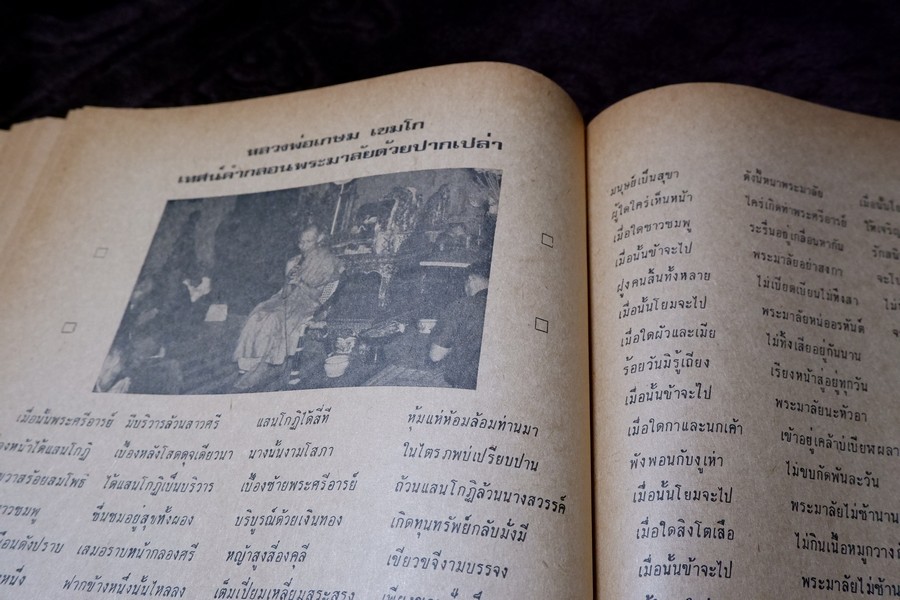 หลวงพ่อเกษม เขมโก
เทศน์คำกลอนพระมาลัยด้วยปากเปล่า
เมื่อนั้นพระศรีอารย์ มีบริวารล้วนสาวศรี แสนโกฏิได้สี่ที หุ้มแห่ห้อมล้อมท่านมา
หน้าได้แสนโกฏิ เบื้องหลังโสดดุจเดียวนา นางนั้นงามโสภา ในไตรภพบ่เปรียบปาน
ได้แสนโกฏิเป็นบริวาร เบื้องซ้ายพระศรีอารย์ ถ้วนแสนโกฏิล้วนนางสวรรค์
ชื่นชมอยู่สุขทั้งผอง บริบูรณ์ด้วยเงินทอง เกิดทุนทรัพย์กลับมั่งมี
เสมอราบหน้ากลองศรี หญ้าสูงสี่องคุลี เขียวขจีงามบรรจง
หนึ่ง ฟากข้างหนึ่งนั้นไหลลง เต็มเปี่ยมเหลี่ยมสระสรง
มนุษย์เป็นสุขา ดังนี้หนาพระมาลัย
ผู้ใดใคร่เห็นหน้า ใคร่เกิดทาพระศรีอารย์
เมื่อใดชาวชมพู ระรื่นอยู่เกลื่อนหากัน
เมื่อนั้นข้าจะไป พระมาลัยอย่าสงกา
ฝูงคนสิ้นทั้งหลาย ไม่เบียดเบียนไม่หึงสา
เมื่อนั้นโยมจะไป พระมาลัยหน่ออรหันต์
เมื่อใดผัวและเมีย ไม่ทิ้งเสียอยู่กันนาน
ร้อยวันมิรู้เถียง เรียงหน้าสู่อยู่ทุกวัน
เมื่อนั้นข้าจะไป พระมาลัยนะหัวอา
เมื่อใดกาและนกเค้า เข้าอยู่เคล้าบ่เบียฬ
พังพอนกับงูเห่า ไม่ขบกัดพันละวัน
เมื่อนั้นโยมจะไป พระมาลัยไม่ช้านาน
เมื่อใดสิงโตเสือ ไม่กินเนื้อหมูกวาง
เมื่อนั้นข้าจะไป พระมาลัยไม่ช้านาน